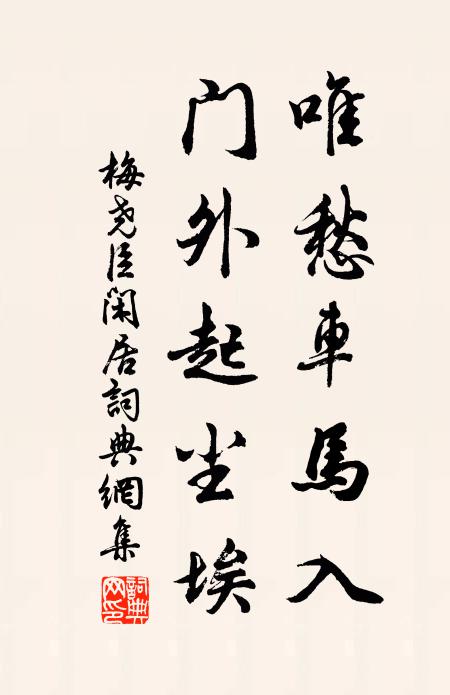 唯愁車馬入
门外起尘埃
梅尧臣閑居詞典網集
詞典网印